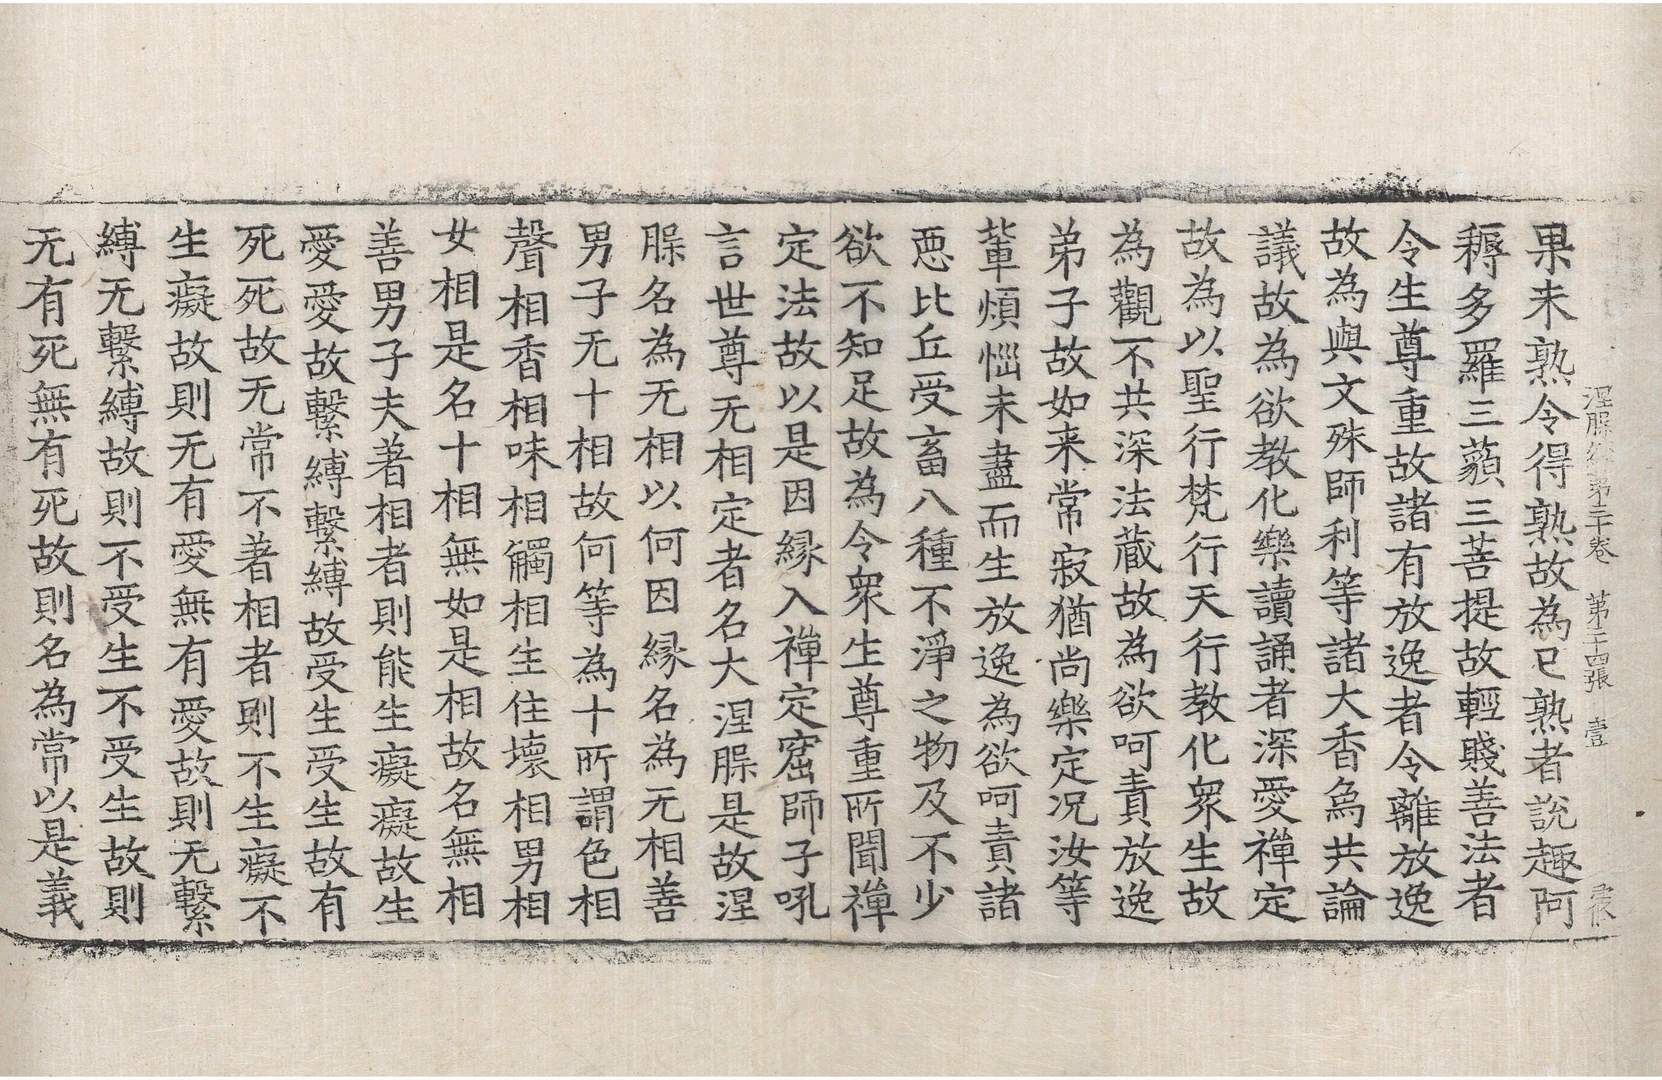 涅槃經第三十卷 第二十四張 壹
果未熟令得熟故為已熟者說趣阿
耨多羅三藐三菩提故輕賤善法者
令生尊重故諸有放逸者令離放逸
故為與文殊師利等諸大香象共論
議故為欲教化樂讀誦者深愛禪定
故為以聖行梵行天行教化衆生故
為觀不共深法藏故為欲呵責放逸
弟子故如来常寂猶尚樂定况汝等
輩煩惱未盡而生放逸為欲呵責諸
惡比丘受畜八種不淨之物及不少
欲不知足故為令衆生尊重所聞禪
定法故以是因緣入禪定窟師子吼
言世尊无相定者名大涅槃是故涅
槃名為无相以何因緣名為无相善
男子无十相故何等為十所謂色相
聲相香相味相觸相生住壞相男相
女相是名十相無如是相故名無相
善男子夫著相者則能生癡癡故生
愛愛故繫縛繫縛故受生受生故有
死死故无常不著相者則不生癡不
生癡故則无有愛無有愛故則无繫
縛无繫縛故則不受生不受生故則
无有死無有死故則名為常以是義